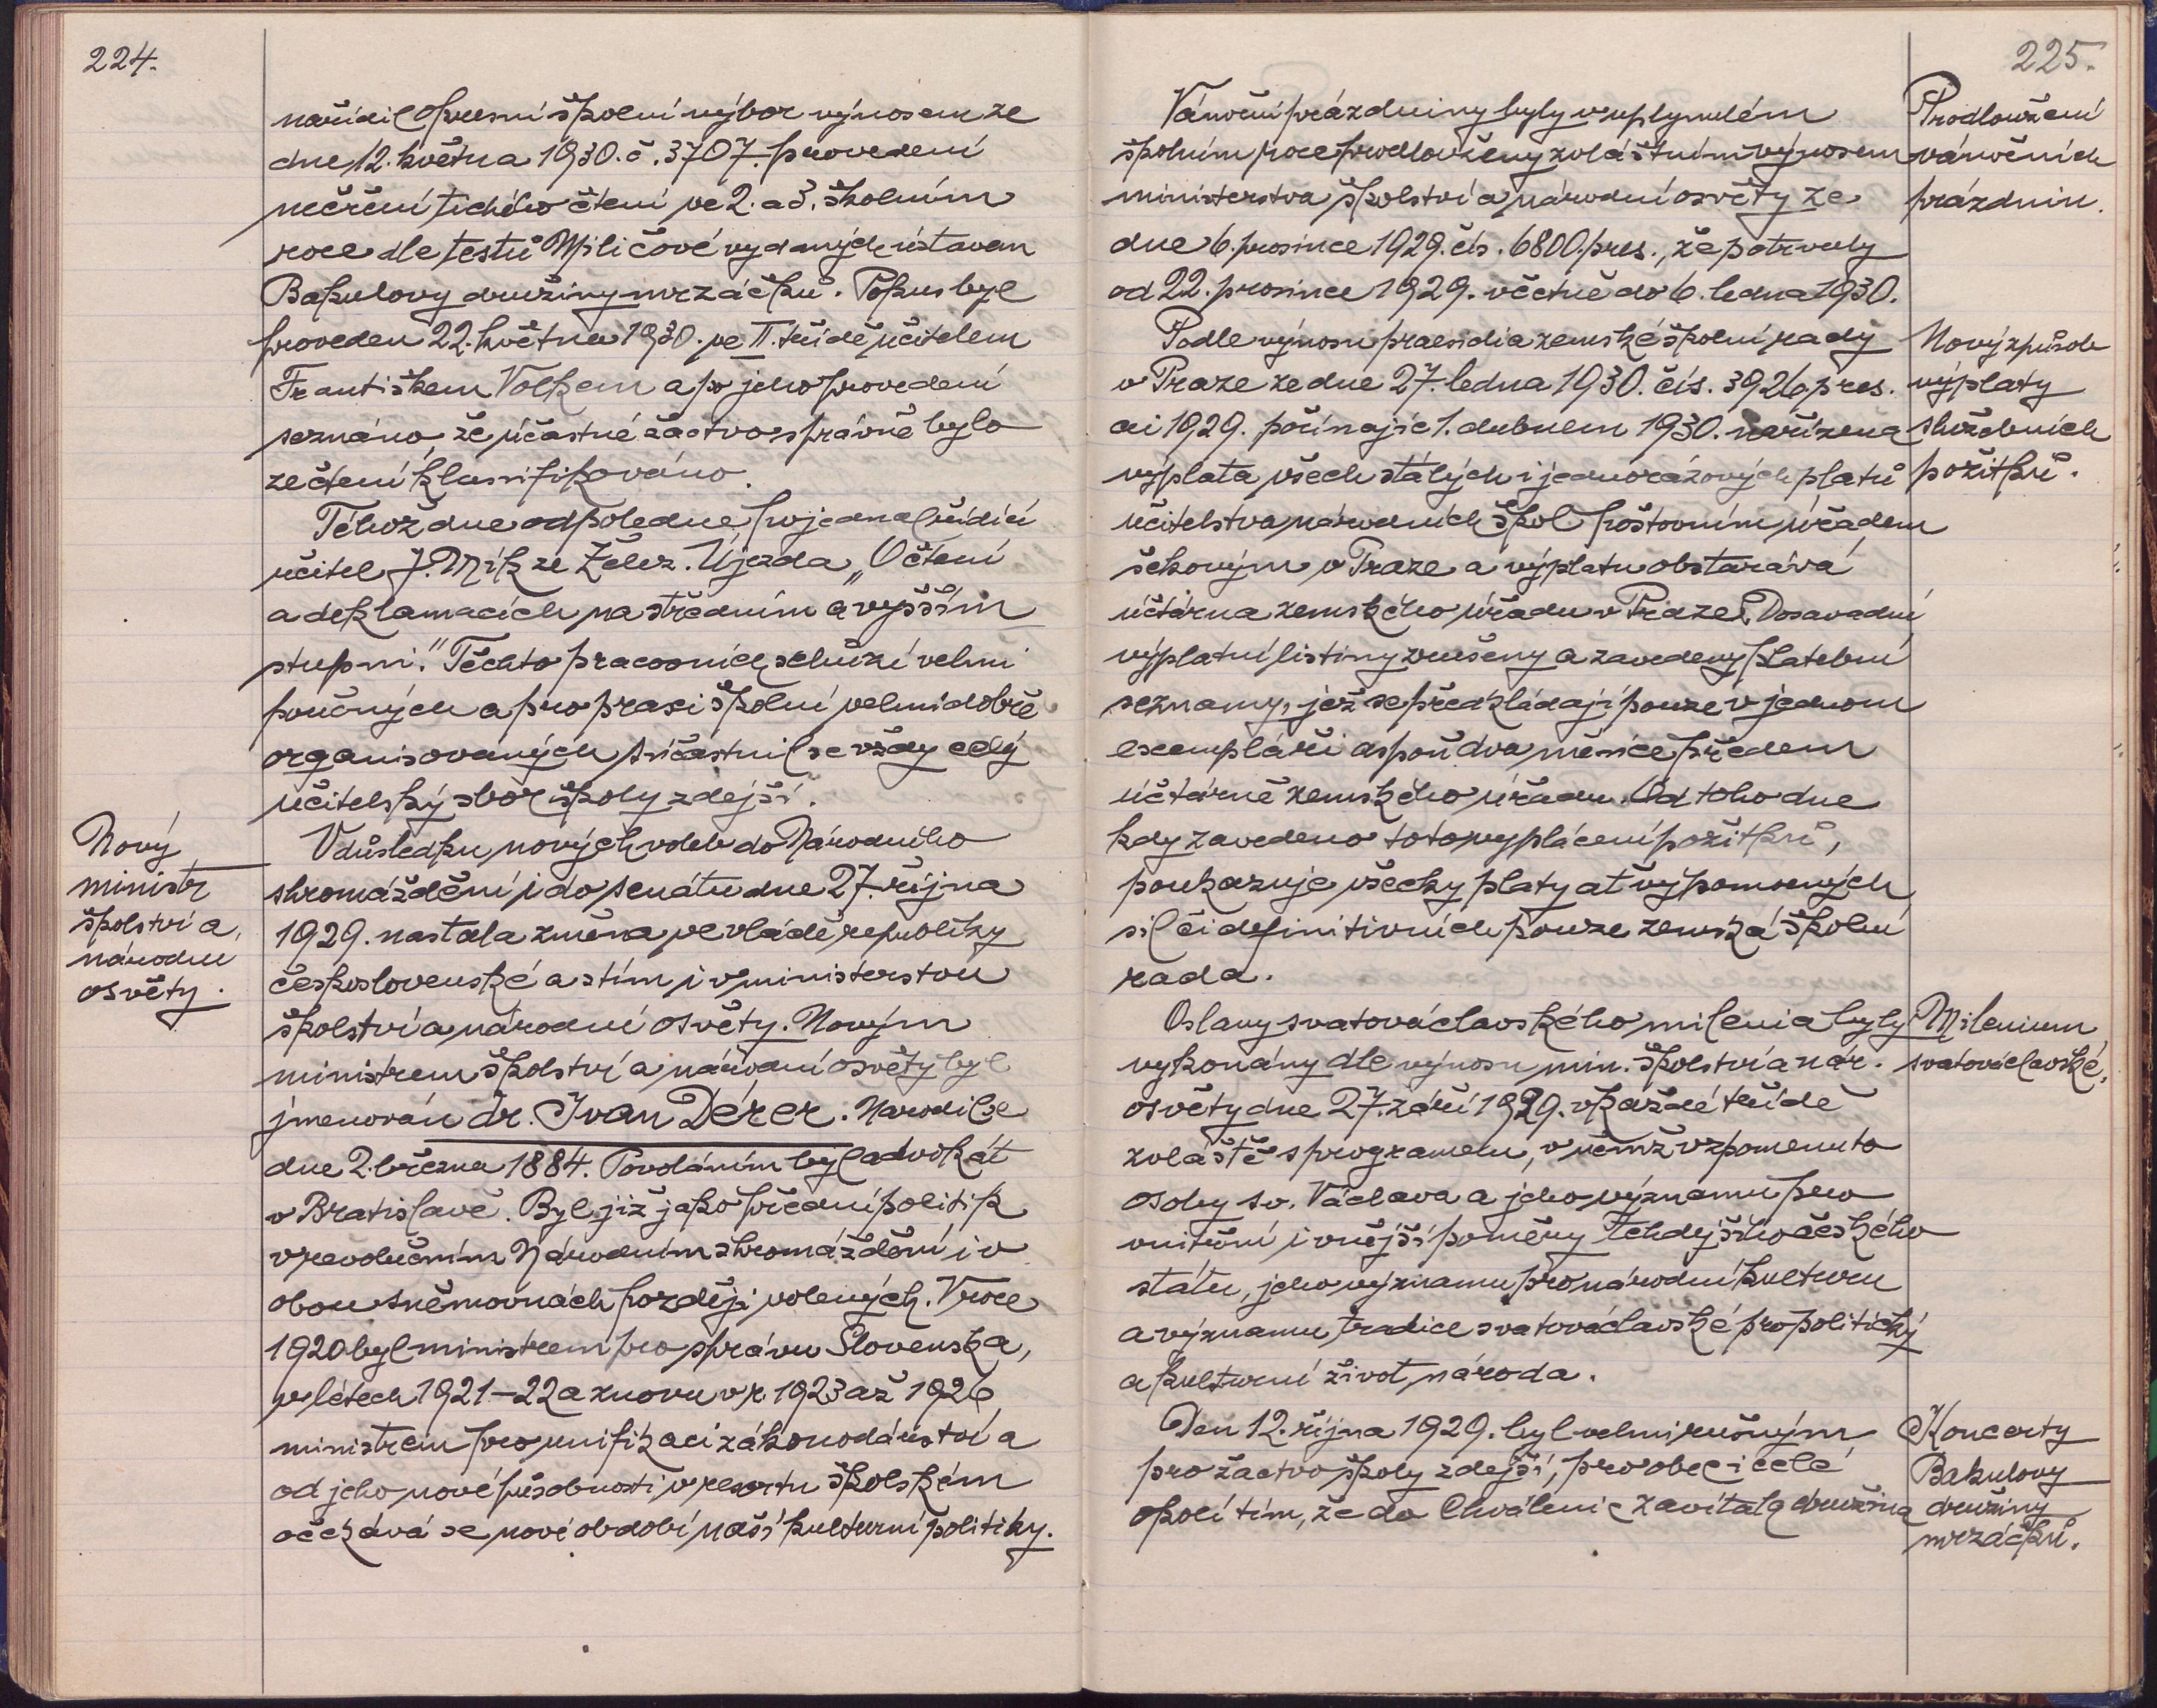 224.
nařídil okresní školní výbor výnosem ze
dne 12. května 1930. č. 3707. provedení
měření tichého čtení ve 2. a 3. školním
roce dle testů Miličové vydaných ústavem
Bakulovy družiny mrzáčků. Pokus byl
proveden 22. května 1930. ve II. třídě učitelem
Františkem Volkem a po jeho provedení
seznáno že účastné žactvo správně bylo
ze čtení klassifikováno.
Téhož dne odpoledne pojednal řídící
učitel J. Mík ze Želez. Újezda „O čtení
a deklamacích na středním a vyšším
stupni." Těchto pracovních schůzí velmi
poučných a pro praxi školní velmi dobře
organisovaných súčastnil se vždy celý
učitelský sbor školy zdejší.
Nový
ministr
školství a
národní
osvěty.
V důsledku nových voleb do Národního
shromáždění i do senátu dne 27. října
1929. nastala změna ve vládě republiky
československé a s tím i v ministerstvu
školství a národní osvěty. Novým
ministrem školství a národní osvěty byl
jmenován dr. Ivan Dérer. Narodil se
dne 2. března 1884. Povoláním byl advokát
v Bratislavě. Byl již jako přední politik
v revolučním Národním shromáždění i v
obou sněmovnách později volených. V roce
1920 byl ministrem pro správu Slovenska,
v létech 1921-22 a znovu v r. 1923 až 1926
ministrem pro unifikaci zákonodárství a
od jeho nové působnosti v resortu školském
očekává se nové období naší kulturní politiky.
225.
Vánoční prázdniny byly v uplynulém
školním roce prodlouženy zvláštním výnosem
ministerstva školství a národní osvěty ze
dne 6. prosince 1929. čís. 6800. pres., že potrvaly
od 22. prosince 1929. včetně do 6. ledna 1930.
Prodloužení
vánočních
prázdnin.
Podle výnosu praesidia zemské školní rady
v Praze ze dne 27. ledna 1930. čís. 3926 pres.
ai 1929. počínajíc 1. dubnem 1930. nařízena
výplata všech stálých i jednorázových platů
učitelstva národních škol poštovním úřadem
šekovým v Praze a výplatu obstarává
účtárna zemského úřadu v Praze. Dosavadní
výplatní listiny zrušeny a zavedeny platební
seznamy, jež se předkládají pouze v jednom
exempláři aspoň dva měsíce předem
účtárně zemského úřadu. Od toho dne
kdy zavedeno toto vyplácení požitků,
poukazuje všecky platy ať výpomocných
sil či definitivních pouze zemská školní
rada.
Nový způsob
výplaty
služebních
požitků.
Oslavy svatováclavského milenia byly
vykonány dle výnosu min. školství a nár.
osvěty dne 27. září 1929. v každé třídě
zvláště s programem, v němž vzpomenuto
osoby sv. Václava a jeho významu pro
vnitřní i vnější poměry tehdejšího českého
státu, jeho významu pro národní kulturu
a významu tradice svatováclavské pro politický
a kulturní život národa.
Milenium
svatováclavské.
Den 12. října 1929. byl velmi rušným
pro žactvo školy zdejší, pro obec i celé
okolí tím, že do Chválenic zavítala družina
Koncerty
Bakulovy
družiny
mrzáčků.